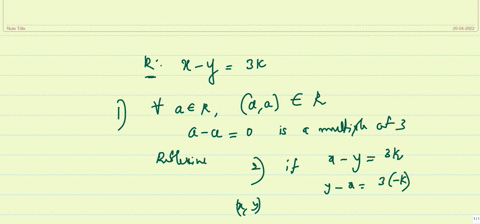 Note Title
26-04-2022
R: x-y = 3k
1) ∀ a∈R, (a,a) ∈ R
a-a = 0 is a multiple of 3
Reflexive
2) if x-y = 3k
y-x = 3(-k)
(x, y)
1/1